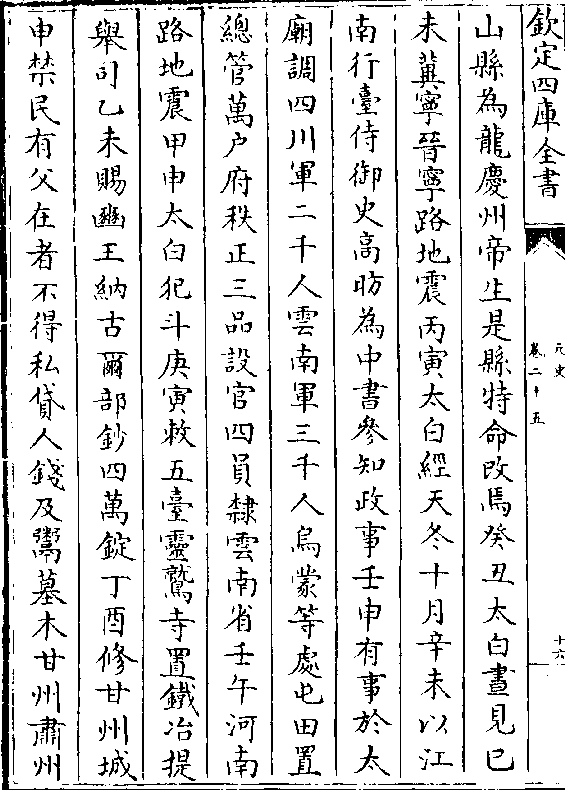 欽定四庫全書
元史
卷二十五
十六
山縣為龍慶州帝生是縣特命改焉癸丑太白晝見巳
未冀寧晉寧路地震丙寅太白經天冬十月辛未以江
南行臺侍御史高昉為中書參知政事壬申有事於太
廟調四川軍二千人雲南軍三千人烏蒙等處屯田置
總管萬户府秩正三品設官四員隸雲南省壬午河南
路地震甲申太白犯斗庚寅敕五臺靈鷲寺置鐵冶提
舉司乙未賜豳王納古爾部鈔四萬錠丁酉修甘州城
申禁民有父在者不得私貸人錢及鬻墓木甘州肅州